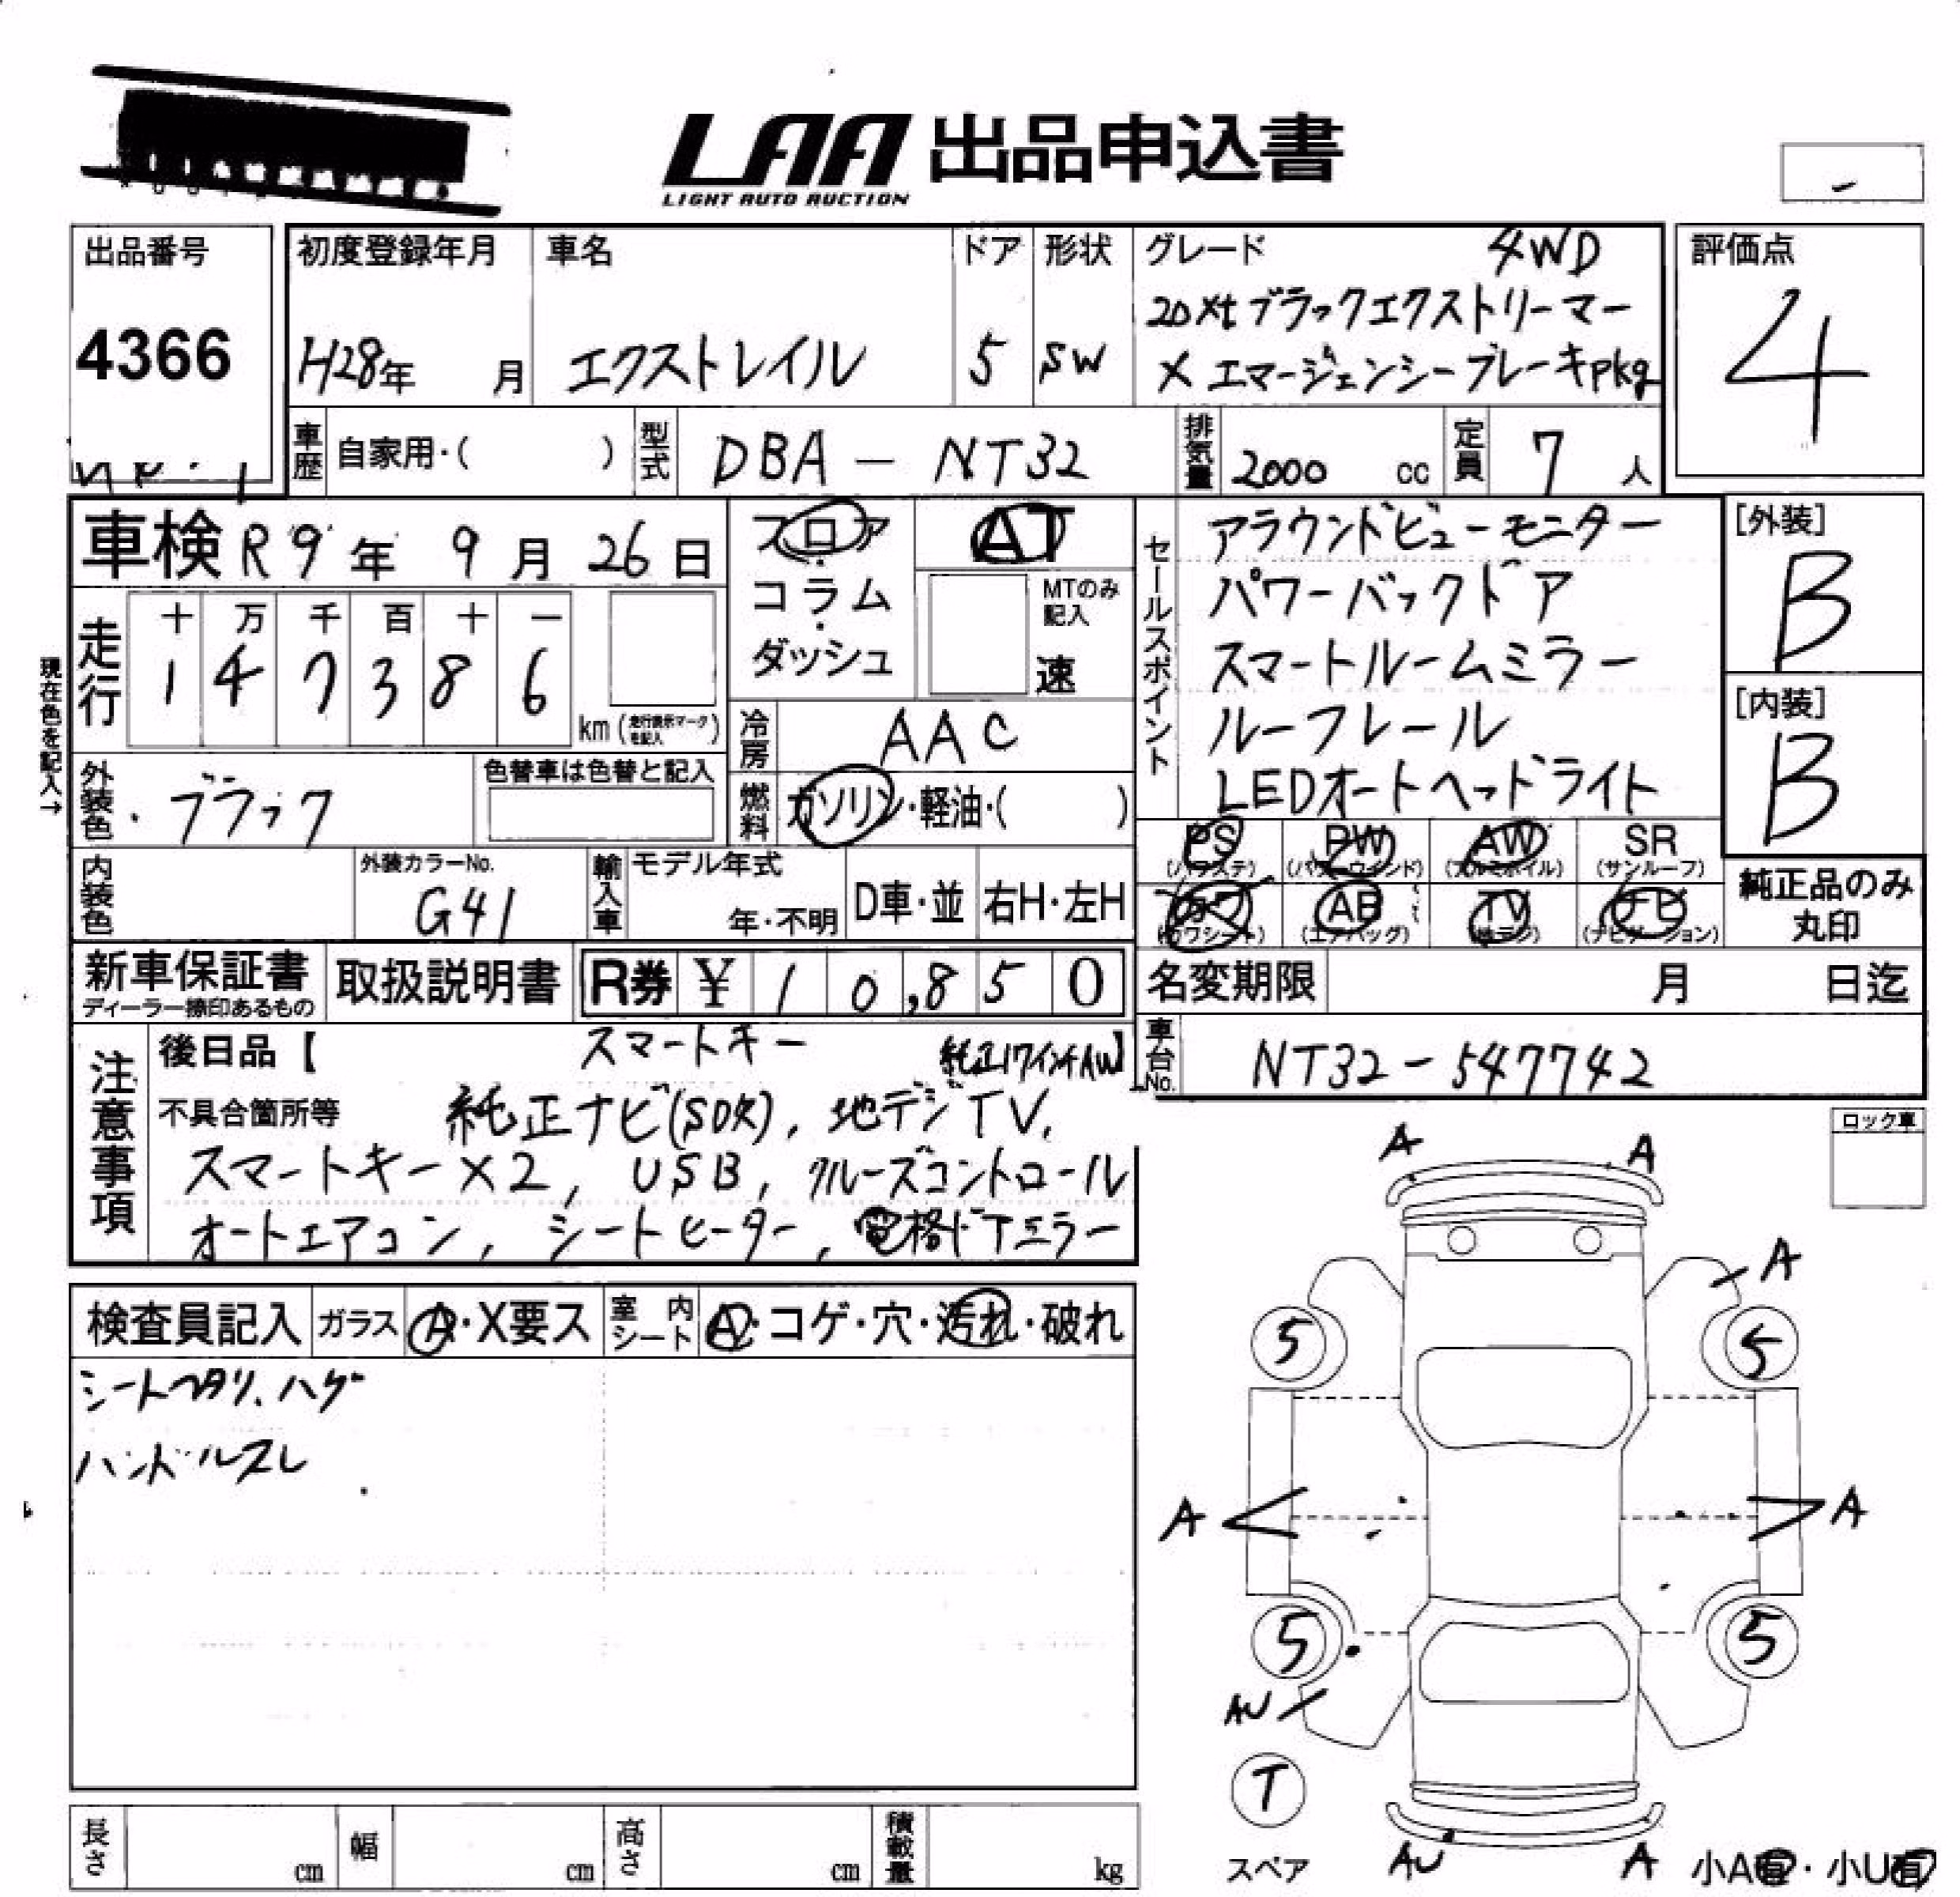 LAA 出品申込書
LIGHT AUTO AUCTION
出品番号
4366
初度登録年月
H28年 月
車名
エクストレイル
ドア
5
形状
SW
グレード 4WD
20xtブラックエクストリーマー
X エマージェンシーブレーキpkg
評価点
4
車歴 自家用・( )
型式 DBA - NT32
排気量 2000 cc
定員 7 人
車検 R9年 9月 26日
フロア
コラム
・
ダッシュ
AT
MTのみ記入
速
走行
十 万 千 百 十 一
1 4 7 3 8 6
km (走行表示マークを記入)
現在色を記入→
冷房 AAC
外装色 ブラック
色替車は色替と記入
燃料 ガソリン・軽油・( )
内装色
外装カラーNo.
G41
輸入車
モデル年式
年・不明
D車・並
右H・左H
セールスポイント
アラウンドビューモニター
パワーバックドア
スマートルームミラー
ルーフレール
LEDオートヘッドライト
[外装]
B
[内装]
B
PS PW AW SR
(パワステ) (パワーウインド) (アルミホイル) (サンルーフ)
カワ AB TV ナビ
(カワシート) (エアバッグ) (地デジ) (ナビゲーション)
純正品のみ
丸印
新車保証書
ディーラー捺印あるもの
取扱説明書
R券 ¥ 10,850
名変期限 月 日迄
車台No. NT32-547742
注意事項
後日品【 スマートキー 純正17インチAW】
不具合箇所等 純正ナビ(SD欠), 地デジTV,
スマートキー×2, USB, クルーズコントロール
オートエアコン, シートヒーター, 電格ドアミラー
検査員記入 ガラス A・X要ス 室内シート A・コゲ・穴・汚れ・破れ
シートヘタリ、ハゲ
ハンドルスレ
ロック車
A A
A
5 5
A A
5 5
AU
T
スペア
AU A
小A有・小U有
長さ cm 幅 cm 高さ cm 積載量 kg